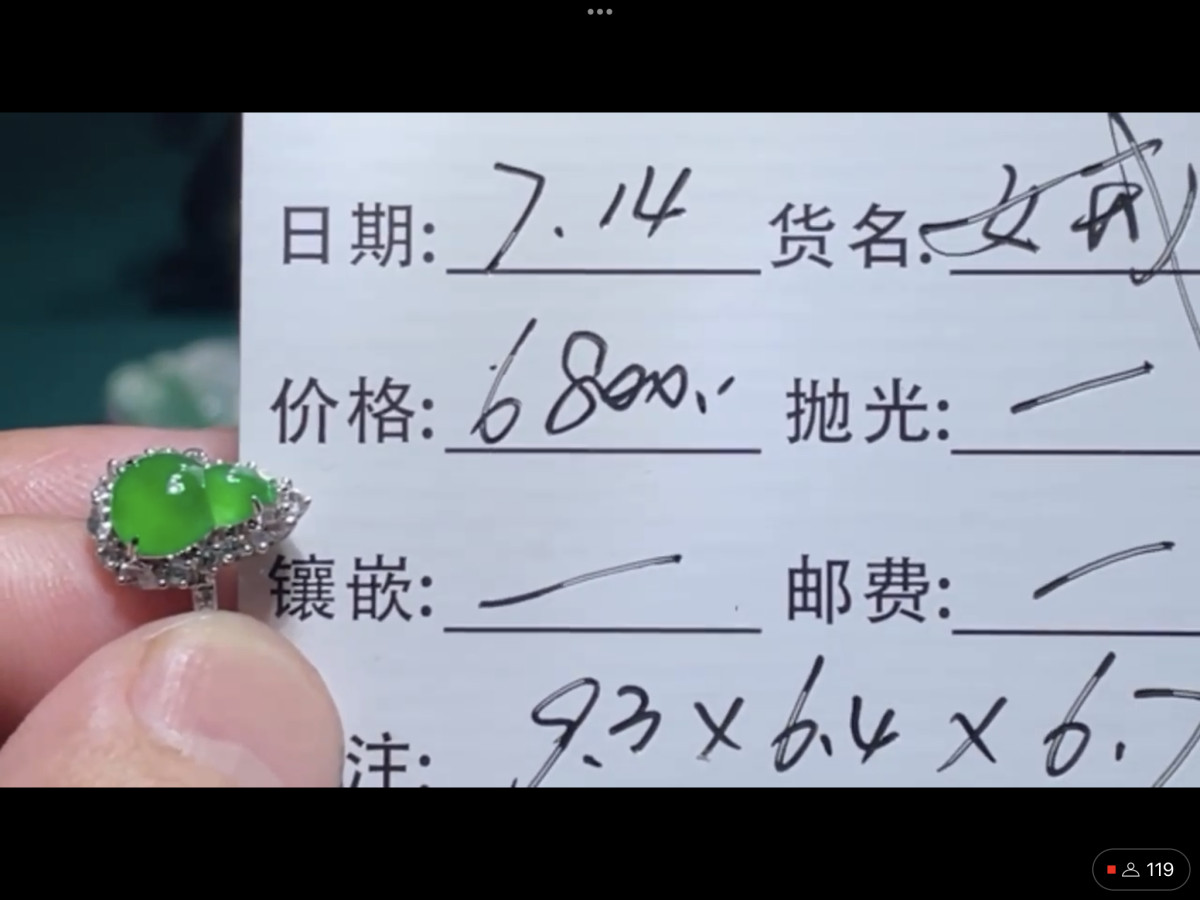 日期: 7.14 货名:
价格: 6800. 抛光: 一
镶嵌: 一 邮费: 一
注: 9.3 x 6.4 x 6.7
119